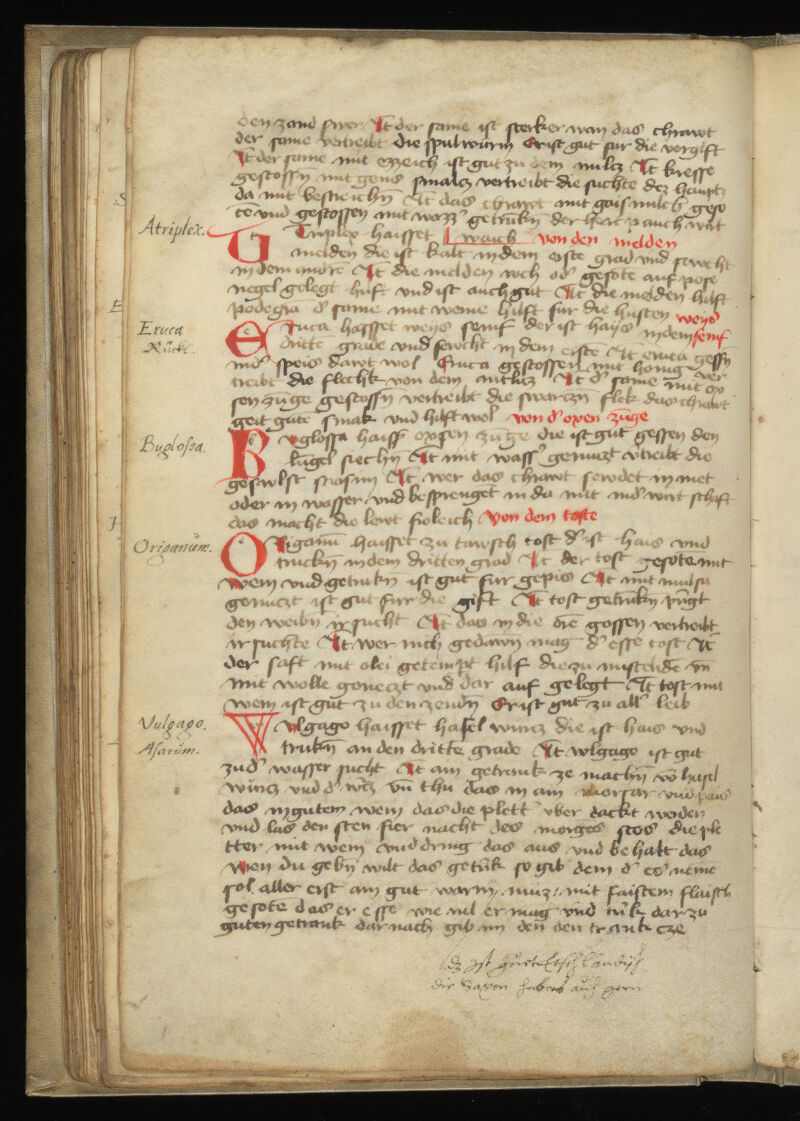 den zand swer It der same ist sterker wan das chrawt
der same vertreibt die spulwurm Er ist gut fur die vergift
It der same mit esseich ist gut zu dem milcz It kresse
gestossn mit gens smalcz vertreibt die suchte dez hauptz
da mit bestreichn It das chrawt mit gais milch geso
te und gestossen mit wazz getrukn der hert
Atriplex.
ATriplex haisset von den melden
melden die ist kalt in dem erste grad vnd fewcht
in dem andre It die melden roch od gesote auf pose
negel gelegt hilft vnd ist auch gut It die melden hilft
podegra d same mit weine hilft fur die husten weys
Eruca
ERuca haysset weys senif der ist hays in dem senif
dritte grade vnd fewcht in dem erste It eruca gessn
in d speis dawt wol Eruca gestossen mit honig ver
treibt die flechk von dem antlicz It d same mit ox
sen zunge gestossn vertreibt die swarczn flek das chrawt
geit gute smak vnd hilft wol von d oxen zunge
Buglossa.
BVglossa haiss oxsen zunge die ist gut gessen den
lungel siechn It mit wass genuczt vtreibt die
geswlst It wer das chrawt sewdet in met
oder in wasser vnd besprenget in da mit ind wirtschaft
das macht die lewt froleich von dem toste
Origanum.
ORiganu haisset zu tawsch tost d ist hais vnd
truckn in dem dritten grad It der tost gesote mit
wein vnd getrukn ist gut fur gepis It mit mulsa
genuczt ist gut fur die gift It tost getrukn pringt
den weibn ir sucht It das in die oren gossen vertreibt
ir suchte It wer nich gedawn mag d esse tost It
der saft mit olei getempt hilf
mit wolle geneczt vnd dar auf gelegt It tost mit
wein ist gut zu den zendn Er ist gut zu all leib
Vulgago.
VVlgago haisset hasel wurcz die ist hais vnd
Asarum.
trukn an den dritte grade It wlgago ist gut
zu d wasser sucht It ain getrank ze machn vo hasel
wurcz vnd d wcz vn thu das in ain morsar vnd
das in gutem wein das die plett vber dackt werden
vnd las den sten fier nacht des morges stos die ple
tter mit wein vnd dring das aus vnd behalt das
wen du gebn wilt das getrak so gib dem d es neme
sol aller erst ain gut warm muz mit faistem flaisch
gesote das er esse wie vil er mag vnd trik dar zu
guten getrank dar nach gib im den den trank eze
die Saxen habens auch gern